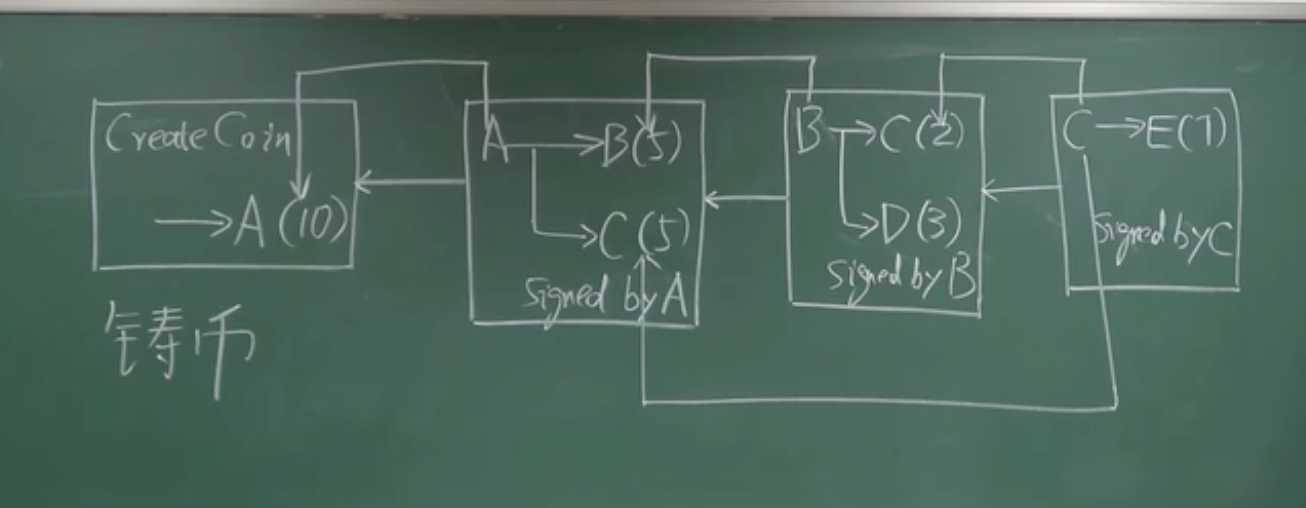 Create Coin
→A(10)
铸币
A→B(5)
→C(5)
Signed by A
B→C(2)
→D(3)
Signed by B
C→E(7)
Signed by C